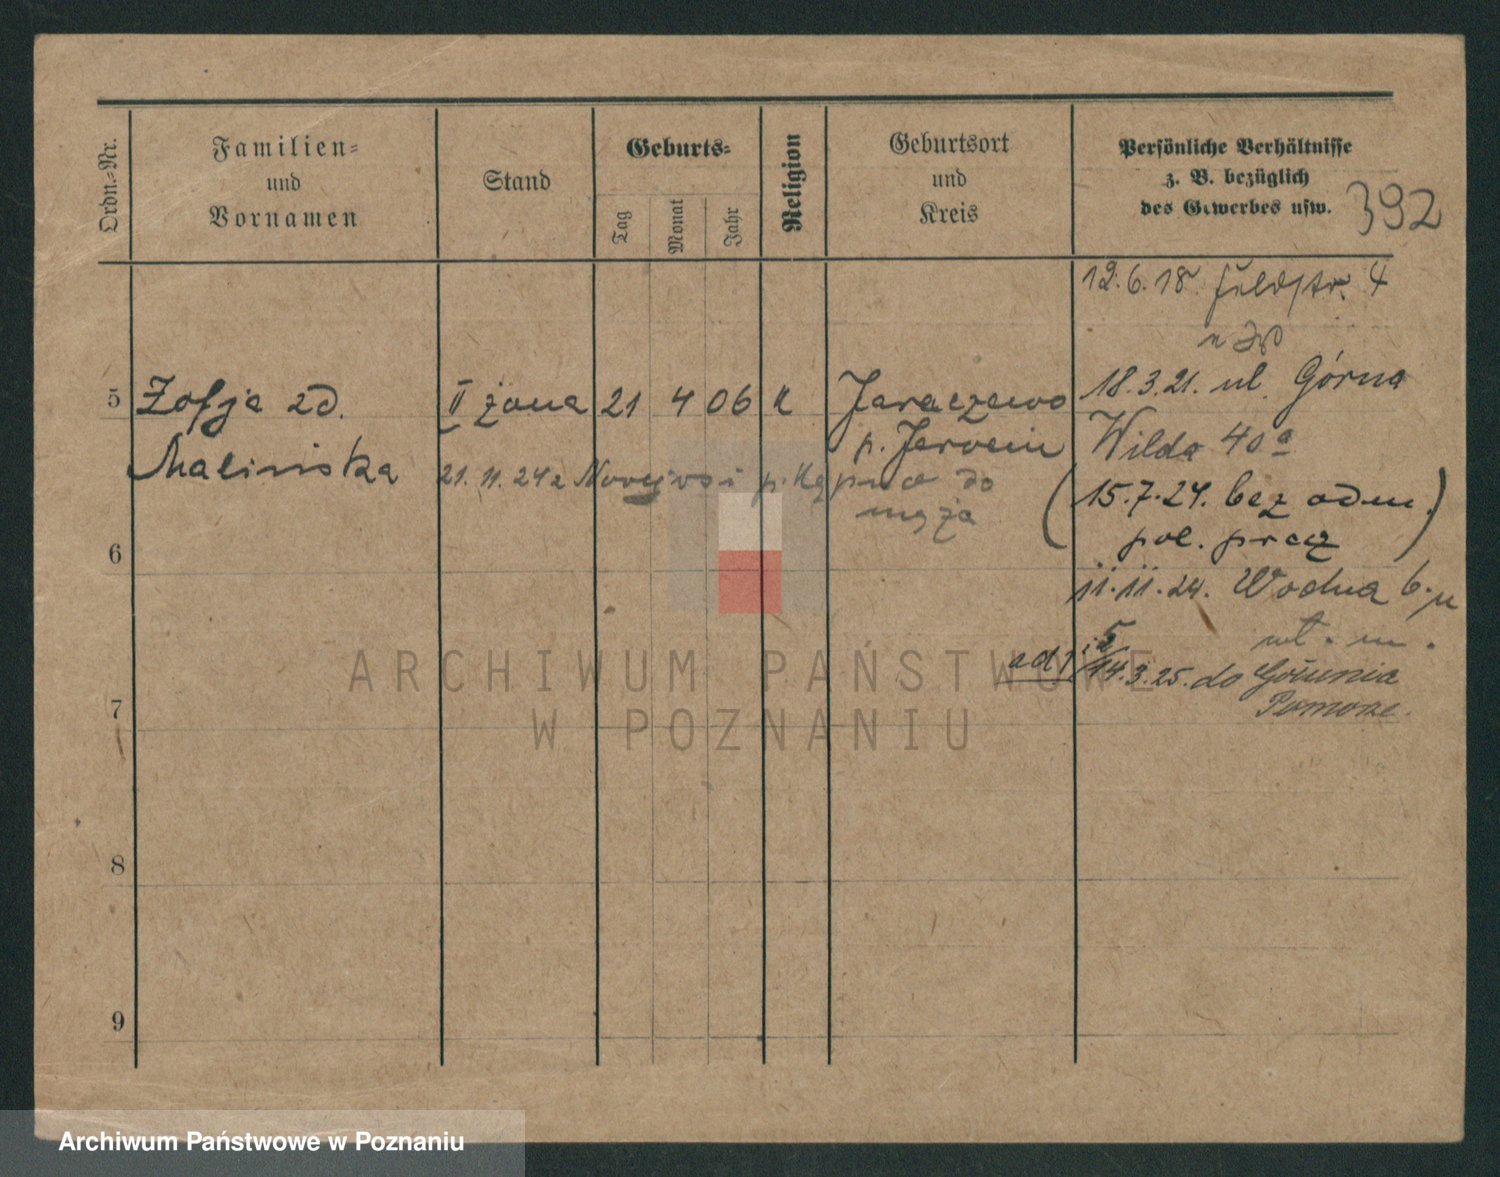 Ordn.-Nr.
Familien-
und
Vornamen
Stand
Geburts-
Tag
Monat
Jahr
Religion
Geburtsort
und
Kreis
Persönliche Verhältnisse
z. B. bezüglich
des Gewerbes usw.
392
12.6.18. Feldstr. 4
18.3.21. ul. Górna
Wilda 40a
(15.7.24. bez adm.)
pol. pracy
11.11.24. Wodna 6.
wł. m.
ad 1
14.3.25. do
Pomorze.
5 Zofja zd. II żona 21 4 06 K Jaraczewo
Malińska
p. Jarocin
21.11.24 z Nowejwsi p. Kępno do
męża
6
7
8
9
ARCHIWUM PAŃSTWOWE
W POZNANIU
Archiwum Państwowe w Poznaniu